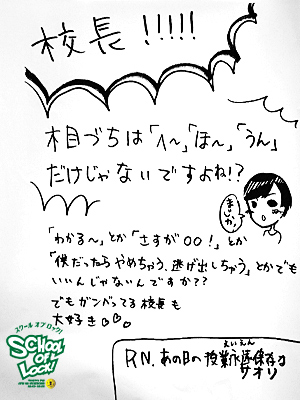 校長!!!!!
相づちは「へ〜」「ほ〜」「うん」
だけじゃないですよね!?
まじか!
「わかる〜」とか「さすが〇〇!」とか
「僕だったらやめちゃう、逃げ出しちゃう」とかでも
いいんじゃないんですか??
でもガンバってる校長も
大好き♡♡♡
スクール オブ ロック!
SCHOOL
OF
LOCK!
えいえん
RN. あの日の授業永遠保存
サオリ